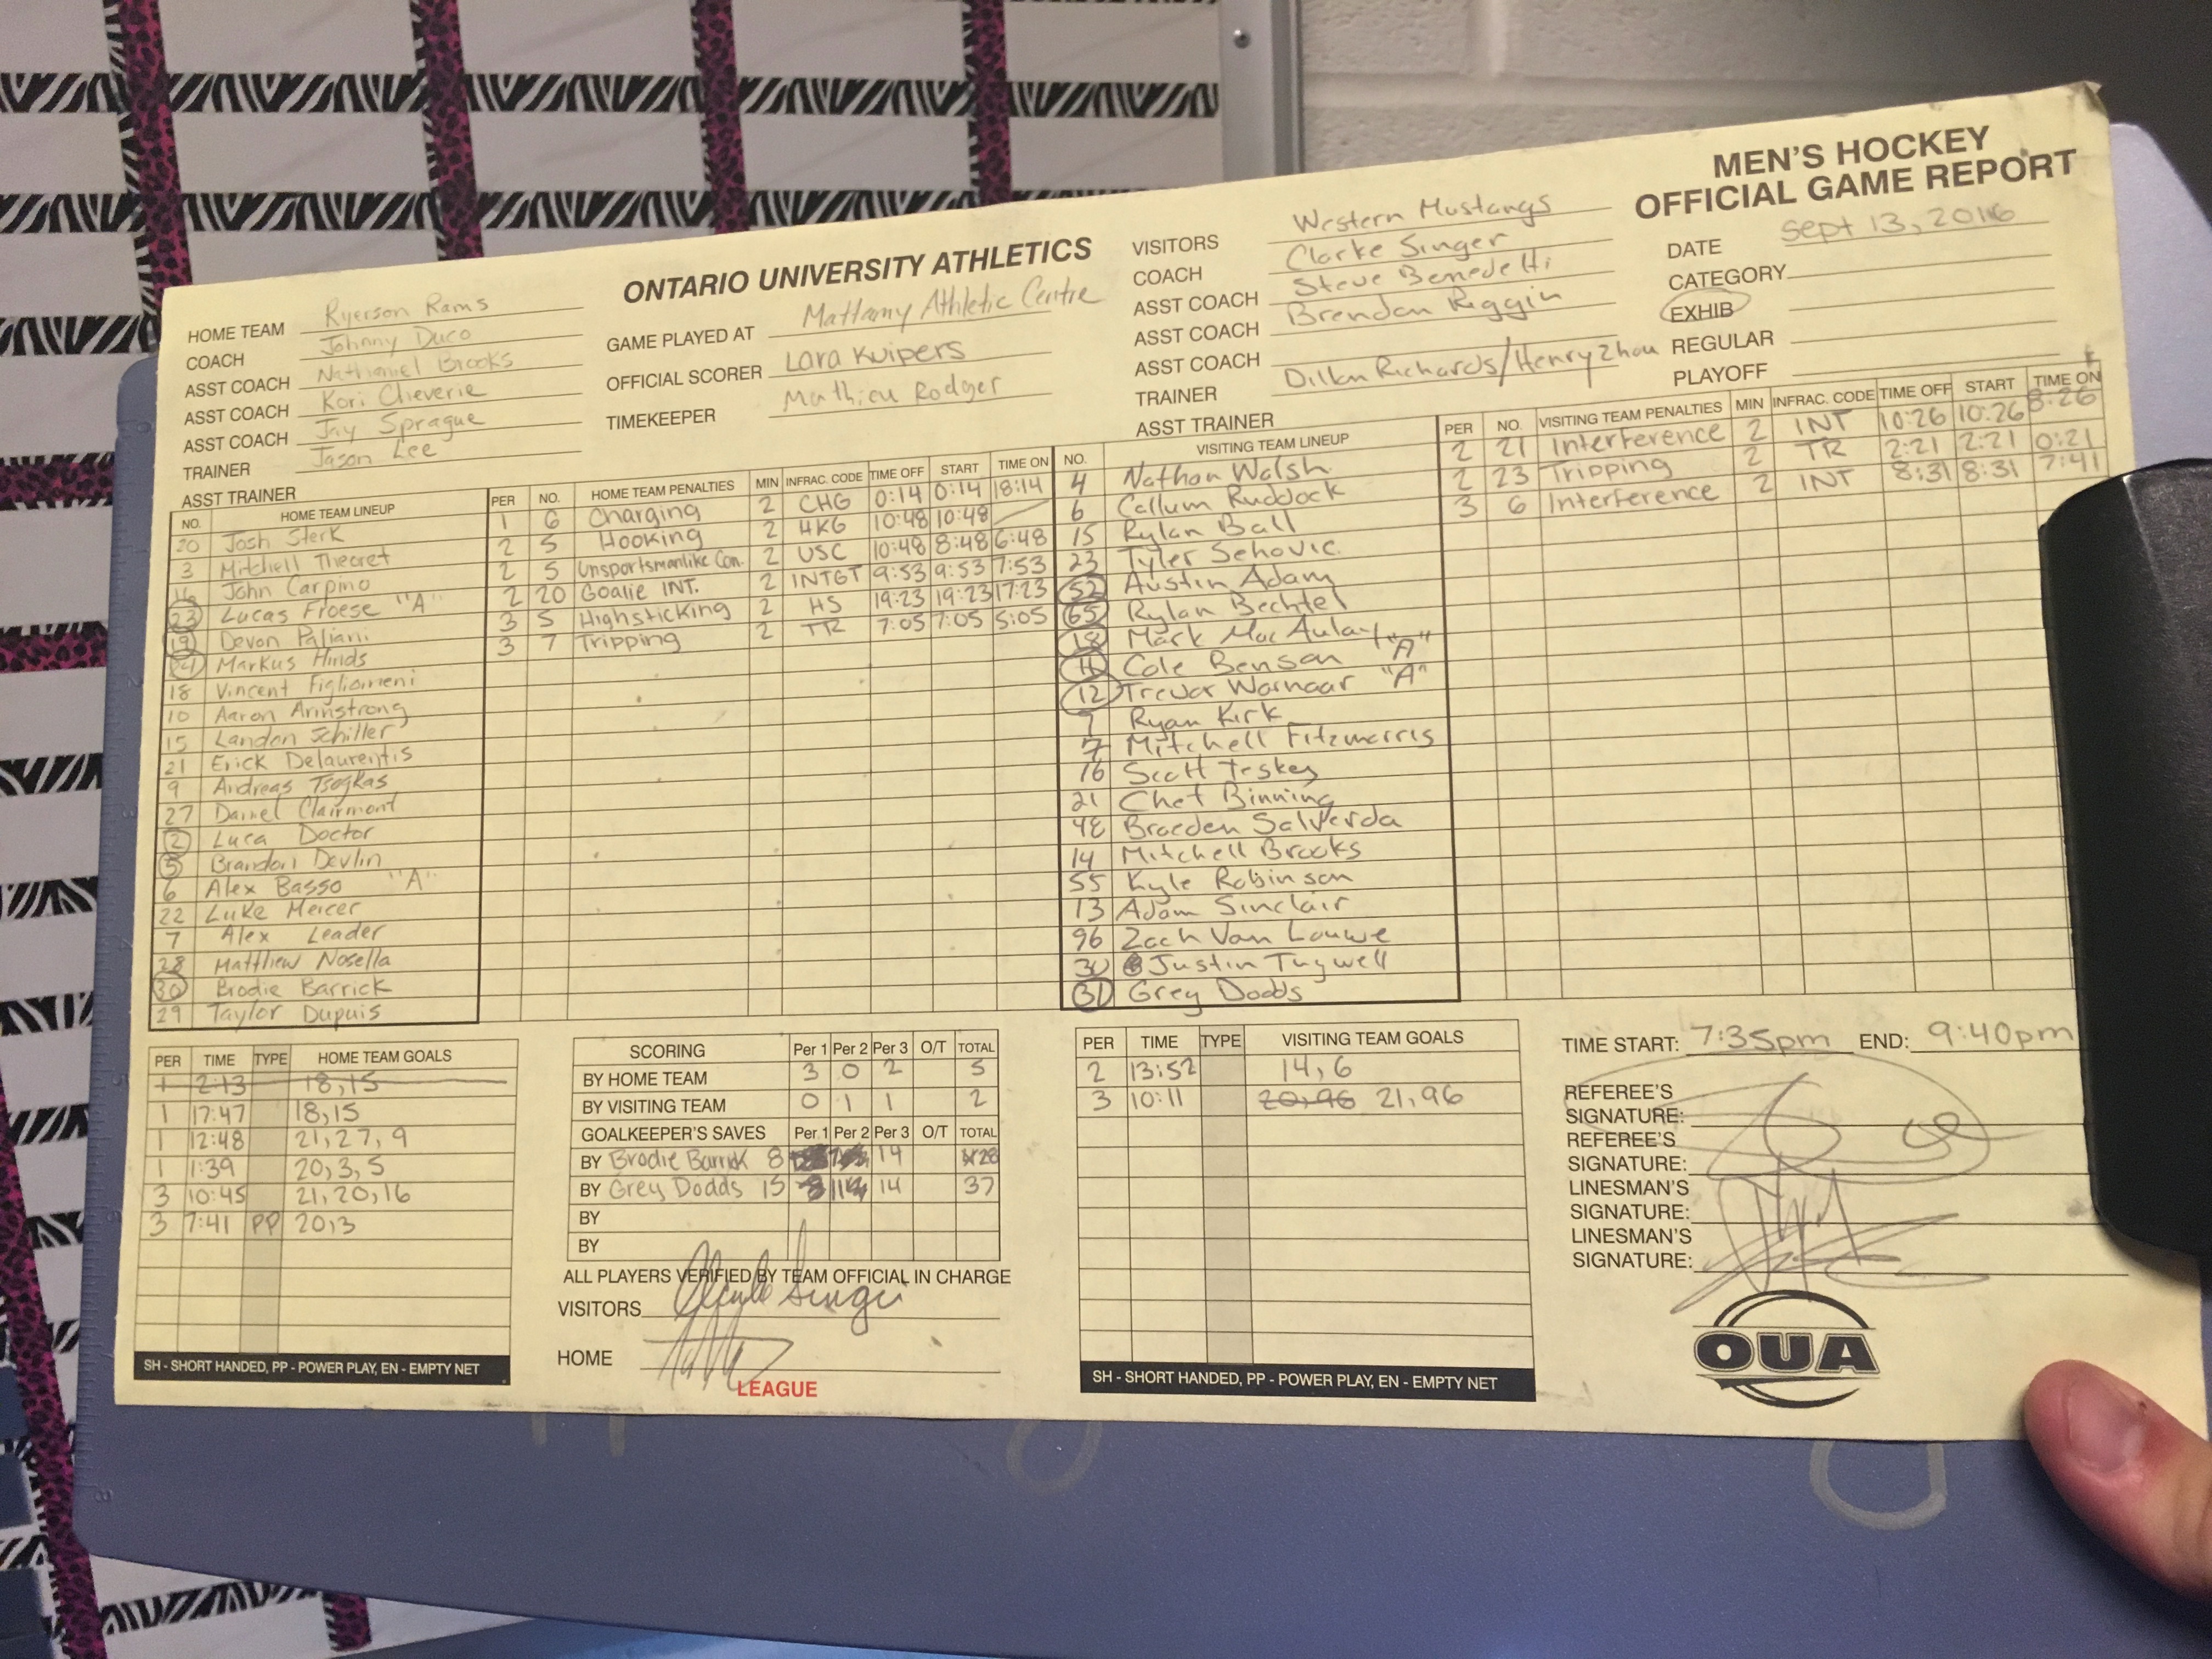 MEN'S HOCKEY
OFFICIAL GAME REPORT
ONTARIO UNIVERSITY ATHLETICS
HOME TEAM Ryerson Rams
COACH Johnny Duco
ASST COACH Nathaniel Brooks
ASST COACH Kori Cheverie
ASST COACH Jay Sprague
TRAINER Jason Lee
ASST TRAINER
GAME PLAYED AT Mattamy Athletic Centre
OFFICIAL SCORER Lara Kuipers
TIMEKEEPER Mathieu Rodger
VISITORS Western Mustangs
COACH Clarke Singer
ASST COACH Steve Benedetti
ASST COACH Brendan Riggin
ASST COACH
TRAINER Dillon Richards/Henry Zhou
ASST TRAINER
DATE Sept 13, 2016
CATEGORY
EXHIB
REGULAR
PLAYOFF
NO. HOME TEAM LINEUP
20 Josh Sterk
3 Mitchell Theoret
16 John Carpino
23 Lucas Froese "A"
19 Devon Paliani
Markus Hinds
18 Vincent Figliomeni
10 Aaron Armstrong
15 Landon Schiller
21 Erick Delaurentis
9 Andreas Tsogkas
27 Daniel Clairmont
2 Luca Doctor
5 Brandon Devlin
6 Alex Basso "A"
22 Luke Mercer
7 Alex Leader
28 Matthew Nosella
30 Brodie Barrick
29 Taylor Dupuis
PER NO. HOME TEAM PENALTIES MIN INFRAC. CODE TIME OFF START TIME ON
1 6 Charging 2 CHG 0:14 0:14 18:14
2 5 Hooking 2 HKG 10:48 10:48
2 5 Unsportsmanlike Con. 2 USC 10:48 8:48 6:48
2 20 Goalie INT. 2 INTGT 9:53 9:53 7:53
3 5 Highsticking 2 HS 19:23 19:23 17:23
3 7 Tripping 2 TR 7:05 7:05 5:05
NO. VISITING TEAM LINEUP
4 Nathan Walsh
6 Callum Ruddock
15 Rylan Ball
23 Tyler Sehovic
52 Austin Adam
65 Rylan Bechtel
18 Mark MacAulay "A"
11 Cole Benson "A"
12 Trevor Warnaar
9 Ryan Kirk
7 Mitchell Fitzmorris
16 Scott Teskey
21 Chet Binning
48 Braeden Salverda
14 Mitchell Brooks
55 Kyle Robinson
13 Adam Sinclair
96 Zach Van Louwe
30 Justin Tugwell
31 Greg Dodds
PER NO. VISITING TEAM PENALTIES MIN INFRAC. CODE TIME OFF START TIME ON
2 21 Interference 2 INT 10:26 10:26 8:26
2 23 Tripping 2 TR 2:21 2:21 0:21
3 6 Interference 2 INT 8:31 8:31 7:41
PER TIME TYPE HOME TEAM GOALS
1 2:13 18,15
1 17:47 18,15
1 12:48 21,27,9
1 1:39 20,3,5
3 10:45 21,20,16
3 7:41 PP 20,3
SH - SHORT HANDED, PP - POWER PLAY, EN - EMPTY NET
SCORING Per 1 Per 2 Per 3 O/T TOTAL
BY HOME TEAM 3 0 2 5
BY VISITING TEAM 0 1 1 2
GOALKEEPER'S SAVES Per 1 Per 2 Per 3 O/T TOTAL
BY Brodie Barrick 8 14 28
BY Greg Dodds 15 8 14 14 37
BY
BY
ALL PLAYERS VERIFIED BY TEAM OFFICIAL IN CHARGE
VISITORS Clarke Singer
HOME
LEAGUE
PER TIME TYPE VISITING TEAM GOALS
2 13:52 14,6
3 10:11 20,96 21,96
SH - SHORT HANDED, PP - POWER PLAY, EN - EMPTY NET
TIME START: 7:35pm END: 9:40pm
REFEREE'S
SIGNATURE:
REFEREE'S
SIGNATURE:
LINESMAN'S
SIGNATURE:
LINESMAN'S
SIGNATURE:
OUA